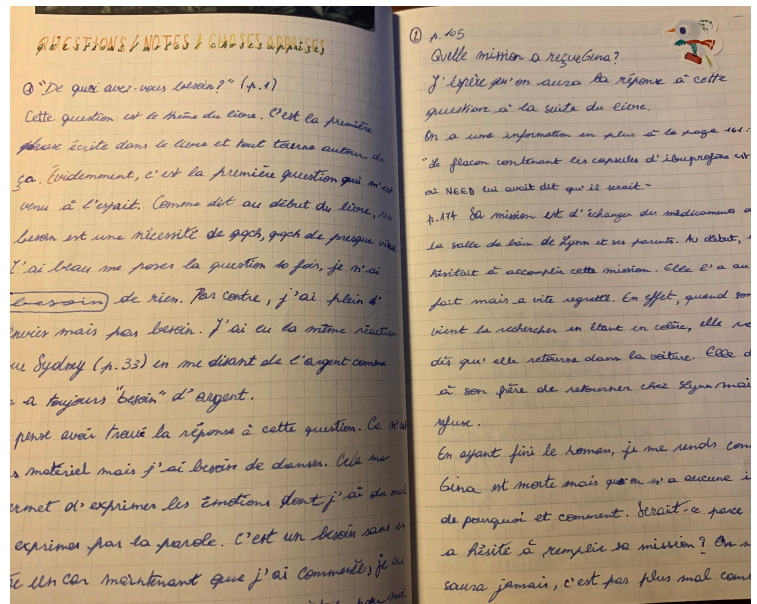 QUESTIONS / NOTES / CHOSES APPRISES
① "De quoi avez-vous besoin?" (p.1)
Cette question est le thème du livre. C'est la première
phrase écrite dans le livre et tout tourne autour de
ça. Évidemment, c'est la première question qui m'est
venu à l'esprit. Comme dit au début du livre, un
besoin est une nécessité de qqch, qqch de presque vital.
J'ai beau me poser la question 10 fois, je n'ai
besoin de rien. Par contre, j'ai plein d'
envies mais pas besoin. J'ai eu la même réaction
que Sydney (p.33) en me disant de l'argent comme
on a toujours "besoin" d'argent.
pense avoir trouvé la réponse à cette question. Ce n'est
pas matériel mais j'ai besoin de danser. Cela me
permet d'exprimer les émotions dont j'ai du mal
exprimer par la parole. C'est un besoin sans en
un car maintenant que j'ai commencé, je
② p.105
Quelle mission a reçue Gina?
J'espère qu'on aura la réponse à cette
question à la suite du livre.
On a une information en plus à la page 161:
"Le flacon contenant les capsules d'ibuprofène est
où NEED lui avait dit qu'il serait."
p.174 Sa mission est d'échanger des médicaments
la salle de bain de Lynn et ses parents. Au début,
hésitait à accomplir cette mission. Elle l'a au
fait mais a vite regretté. En effet, quand son
vient la rechercher en étant en colère, elle
dès qu'elle retourne dans la voiture. Elle d
à son père de retourner chez Lynn mai
refuse.
En ayant fini le roman, je me rends com
Gina est morte mais qu'on n'a aucune i
de pourquoi et comment. Serait-ce parce
a hésité à remplir sa mission? On n
saura jamais, c'est pas plus mal com